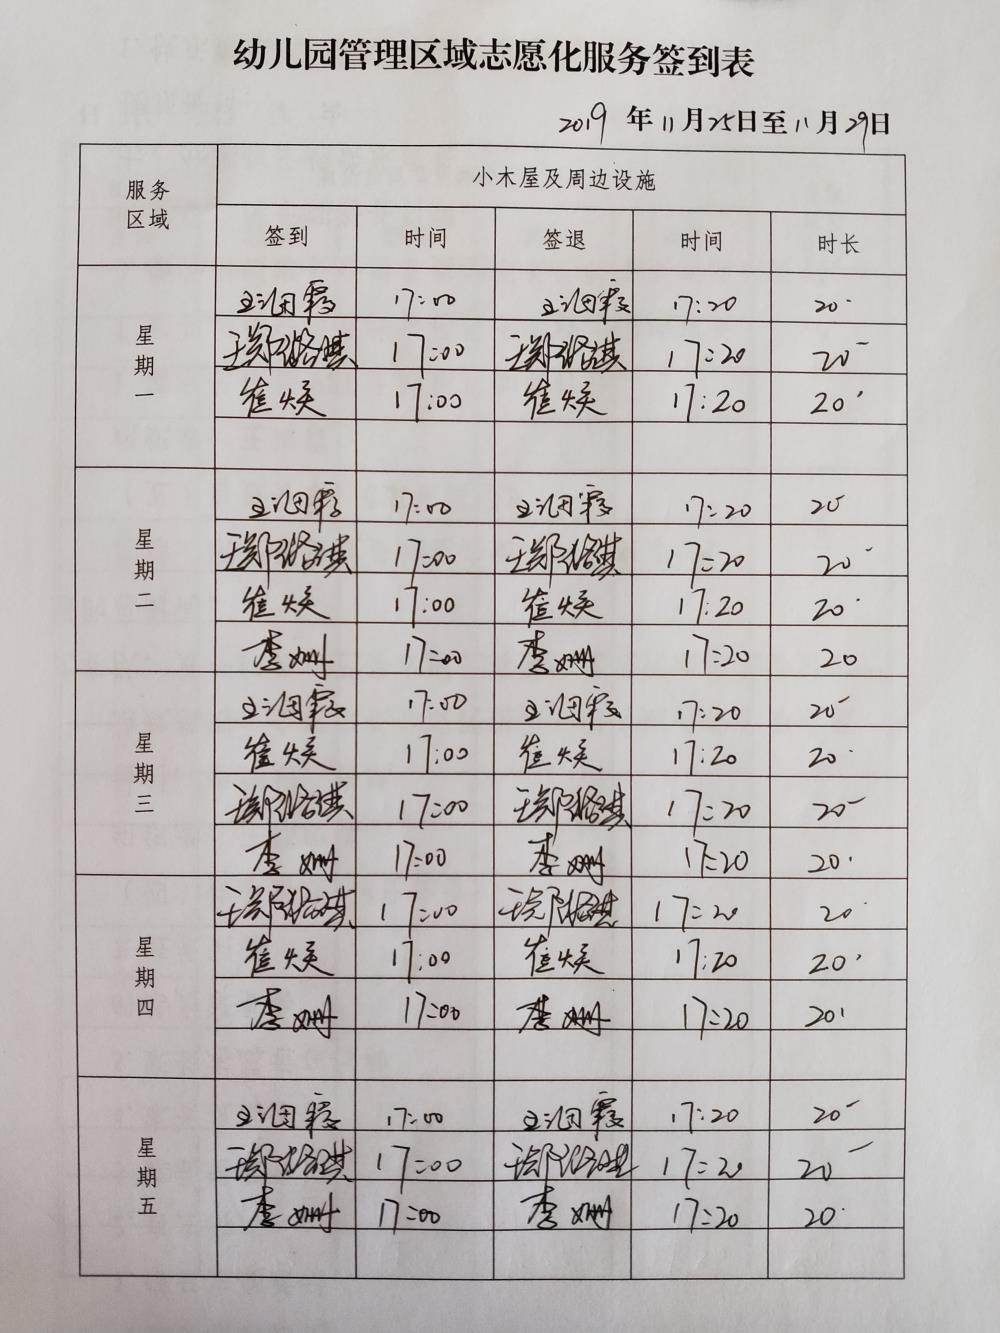 幼儿园管理区域志愿化服务签到表
2019 年 11 月 25日至 11 月 29日
服务区域 小木屋及周边设施
签到 时间 签退 时间 时长
星期一
17:00 17:20 20'
17:00 17:20 20'
崔焕 17:00 崔焕 17:20 20'
星期二
17:00 17:20 20'
17:00 17:20 20'
崔焕 17:00 崔焕 17:20 20'
李姗 17:00 李姗 17:20 20
星期三
17:00 17:20 20'
崔焕 17:00 崔焕 17:20 20'
17:00 17:20 20'
李姗 17:00 李姗 17:20 20'
星期四
17:00 17:20 20'
崔焕 17:00 崔焕 17:20 20'
李姗 17:00 李姗 17:20 20'
星期五
17:00 17:20 20'
17:00 17:20 20'
李姗 17:00 李姗 17:20 20'